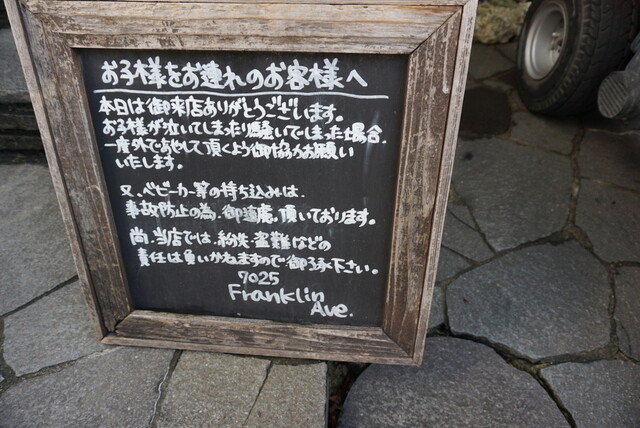 お子様をお連れのお客様へ
本日は御来店ありがとうございます。
お子様が泣いてしまったり騒いでしまった場合、
一度外であやして頂くよう御協力お願い
いたします。
又、ベビーカー等の持ち込みは、
事故防止の為、御遠慮。頂いております。
尚、当店では、紛失・盗難などの
責任は負いかねますので御了承下さい。
7025
Franklin
Ave.